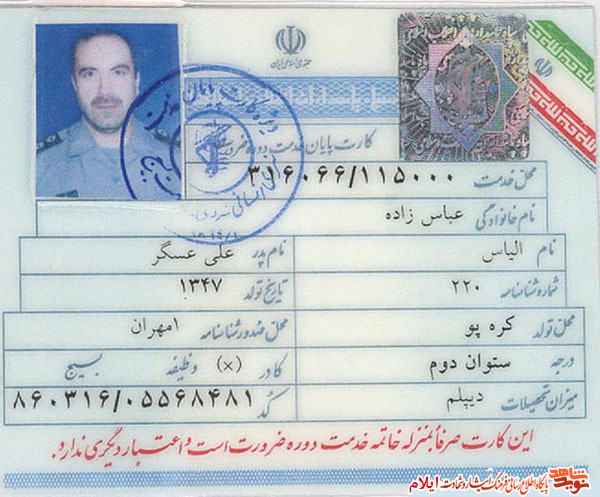 جمهوری اسلامی ایران
کارت پایان خدمت دوره ضرورت
محل خدمت ۳۱۶۰۶۶/۱۱۵۰۰۰
نام خانوادگی عباس زاده
نام الیاس
نام پدر علی عسگر
شماره شناسنامه ۲۲۰
تاریخ تولد ۱۳۴۷
محل تولد کره پو
محل صدور شناسنامه مهران
درجه ستوان دوم
کادر (×) وظیفه بسیج
میزان تحصیلات دیپلم
کد ۸۶۰۳۱۶/۰۵۵۶۸۴۸۱
این کارت صرفاً بمنزله خاتمه خدمت دوره ضرورت است و اعتبار دیگری ندارد.
نوید شاهد
پایگاه اطلاع رسانی فرهنگ ایثار و شهادت ایلام